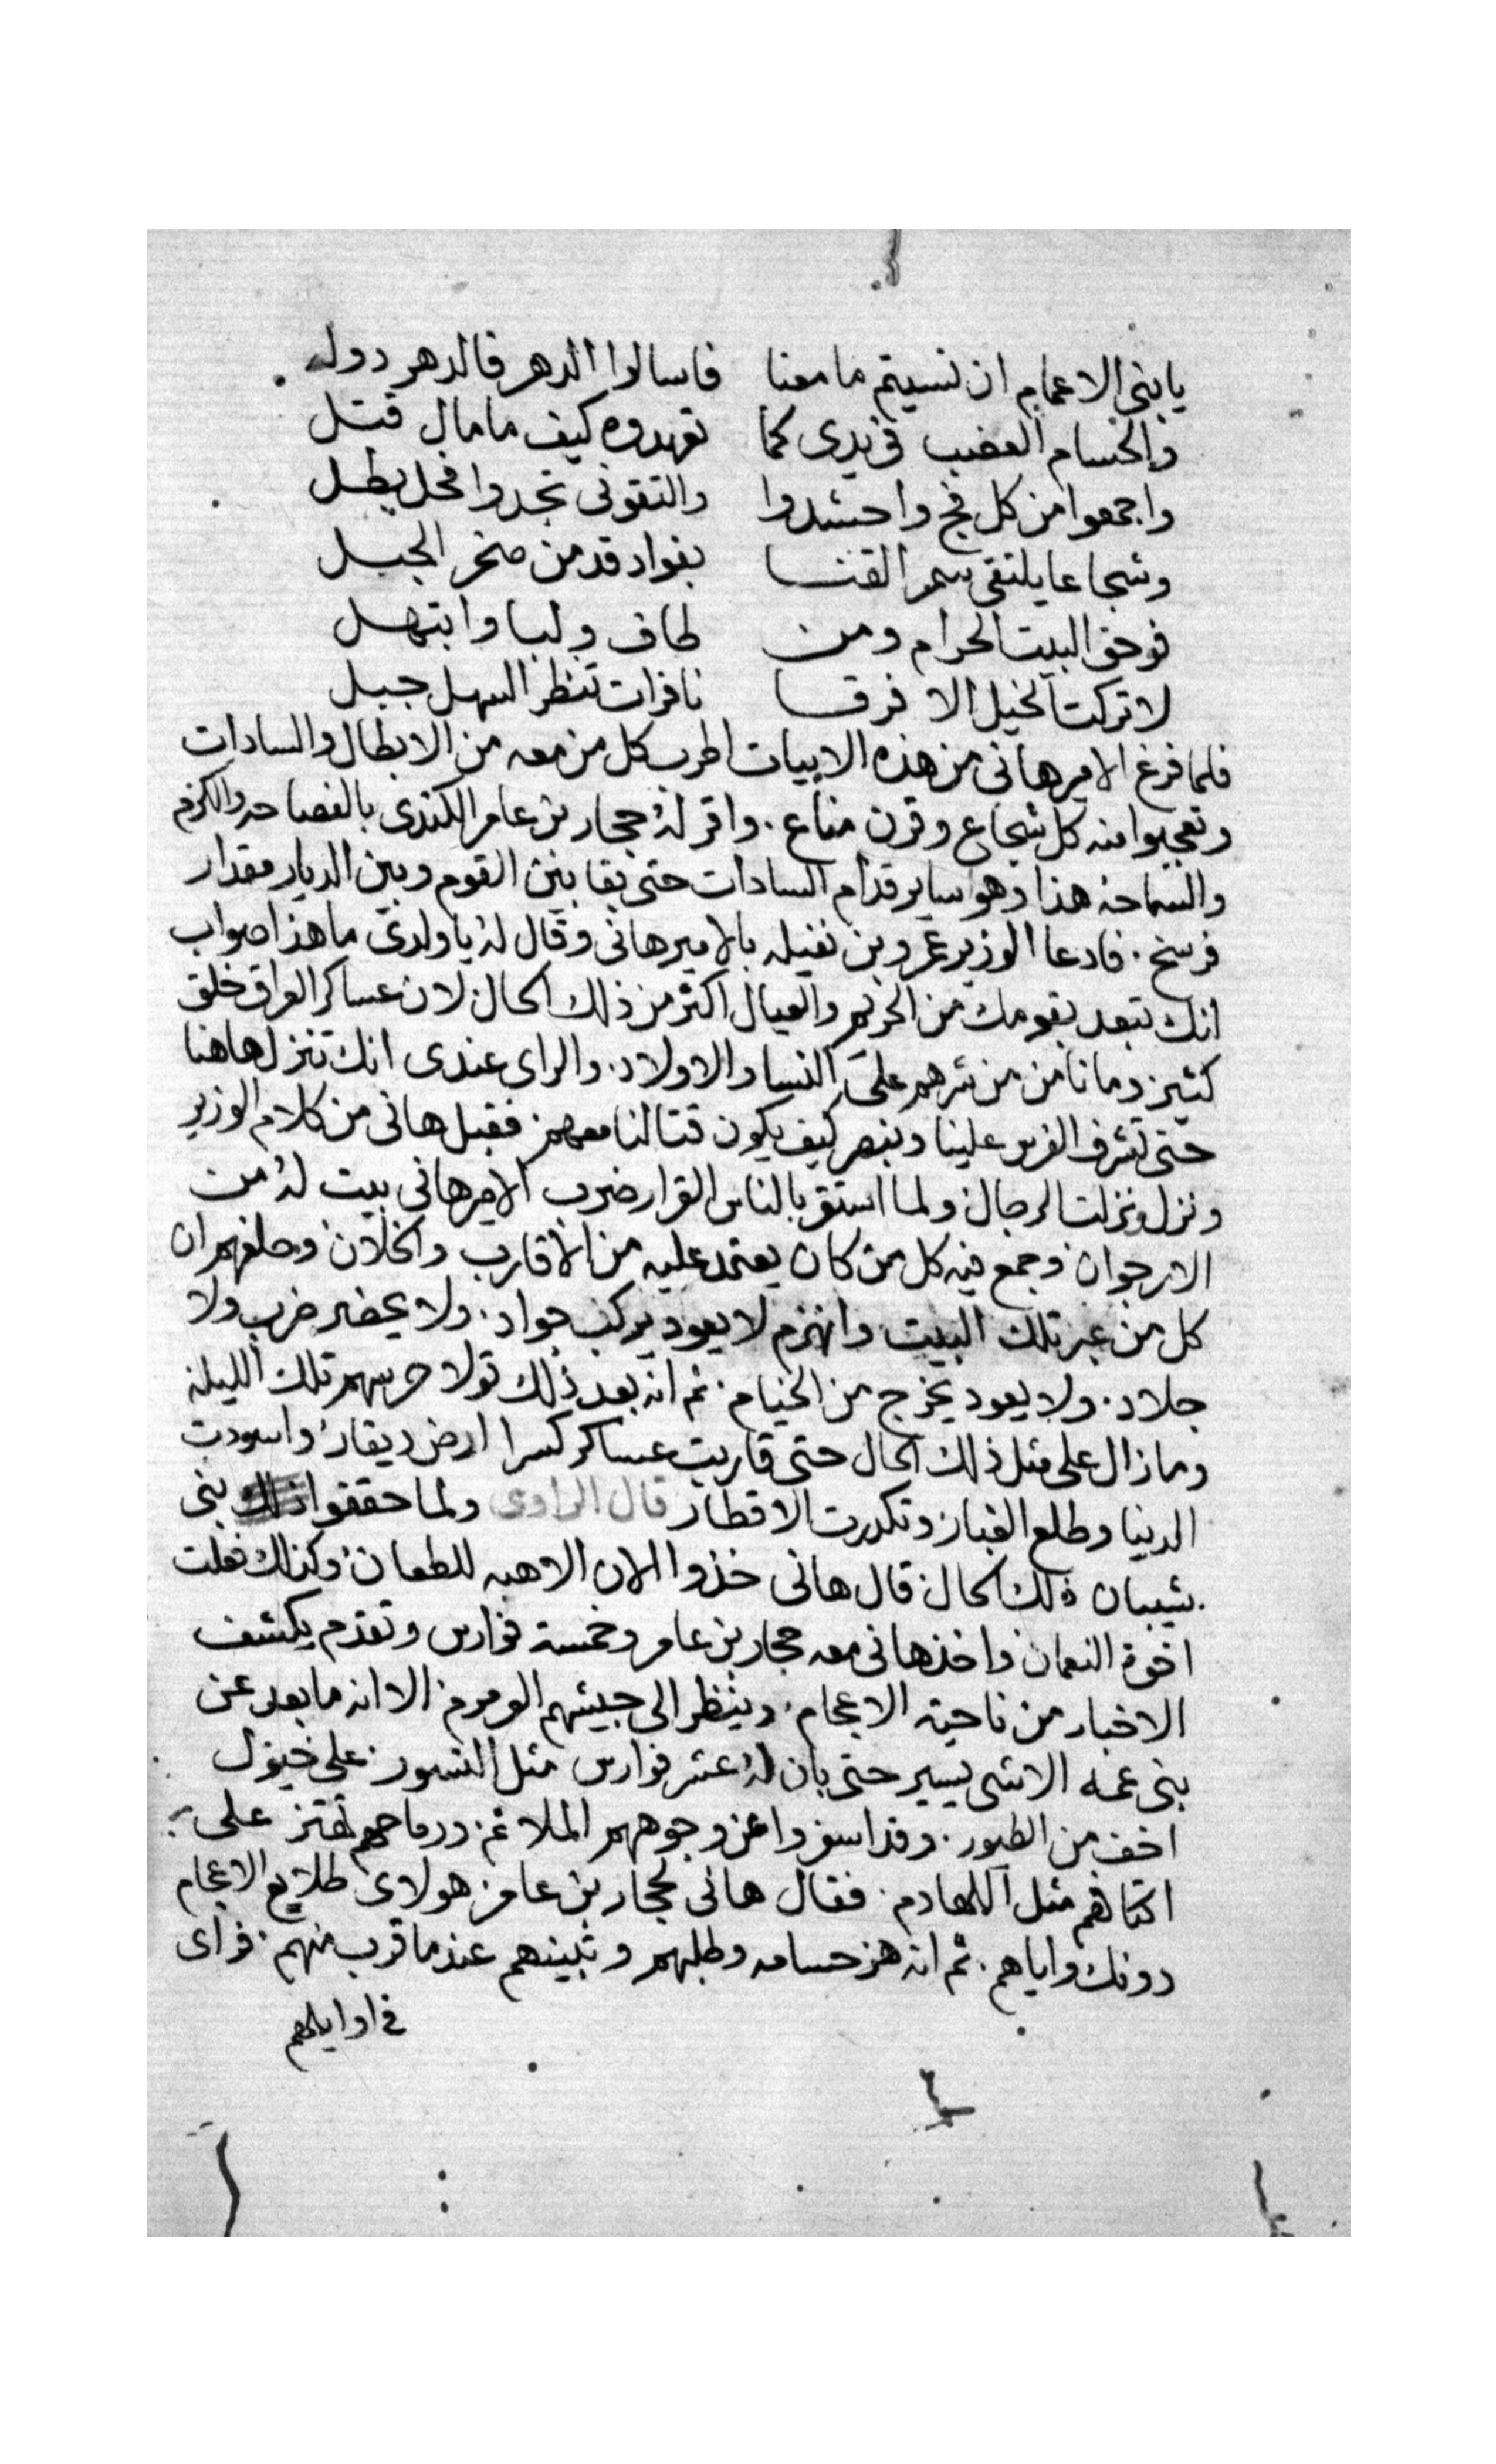 يا بنى الاعمام ان نسيتم ما معنا فاسالوا الدهر فالدهر دول
والحسام العضب فى يدى كما تعهدوه كيف ما مال قتل
واجمعوا من كل فج واحشدوا والتقونى تجدوا فحل بطل
وشجاعا يلتقى سمر القنا بفواد قد من صخر الجبل
فوحق البيت الحرام ومن طاف ولبا وابتهل
لا تركت الخيل الا فرقا نافرات تنظر السهل جبل
فلما فرغ الامير هانى من هذه الابيات اطرب كل من معه من الابطال والسادات
وتعجبوا منه كل شجاع وقرن مناع. واقر له حجار بن عامر الكندى بالفصاحه والكرم
والسماحه هذا وهو ساير قدام السادات حتى بقا بين القوم وبين الديار مقدار
فرسخ. فادعا الوزير عمرو بن نفيله بالامير هانى وقال له يا ولدى ما هذا صواب
انك تبعد بقومك من الحريم والعيال اكثر من ذلك الحال لان عساكر العراق خلق
كثير وما نامن من شرهم على النسا والاولاد. والراى عندى انك تنزل هاهنا
حتى تشرف الفرس علينا وتبصر كيف يكون قتالنا معهم. فقبل هانى من كلام الوزير
ونزل ونزلت الرجال ولما استقر بالناس القرار ضرب الامير هانى بيت له من
الارجوان وجمع فيه كل من كان يعتمد عليه من الاقارب والخلان وحلفهم ان
كل من عبر تلك البيت وانهزم لا يعود يركب جواد. ولا يحضر ضرب ولا
جلاد. ولا يعود يخرج من الخيام. ثم انه بعد ذلك تولا حرسهم تلك الليله
وما زال على مثل ذلك الحال حتى قاربت عساكر كسرا ارض ذيقار واسودت
الدنيا وطلع الغبار وتكدرت الاقطار قال الراوى ولما حققوا بنى
شيبان ذلك الحال قال هانى خذوا الان الاهبه للطعان وكذلك فعلت
اخوة النعمان واخذ هانى معه حجار بن عامر وخمسة فوارس وتقدم يكشف
الاخبار من ناحية الاعجام. وينظر الى جيشهم العرمرم. الا انه ما بعد عن
بنى عمه الا شى يسير حتى بان له عشر فوارس مثل النسور. على خيول
اخف من الطيور. وقد اسفروا عن وجوههم الملاثم. ورماحهم تهتز على
اكتافهم مثل اللهادم. فقال هانى لحجار بن عامر هولاى طلايع الاعجام
دونك واياهم. ثم انه هز حسامه وطلبهم وتبينهم عندما قرب منهم. فراى
فى اوايلهم